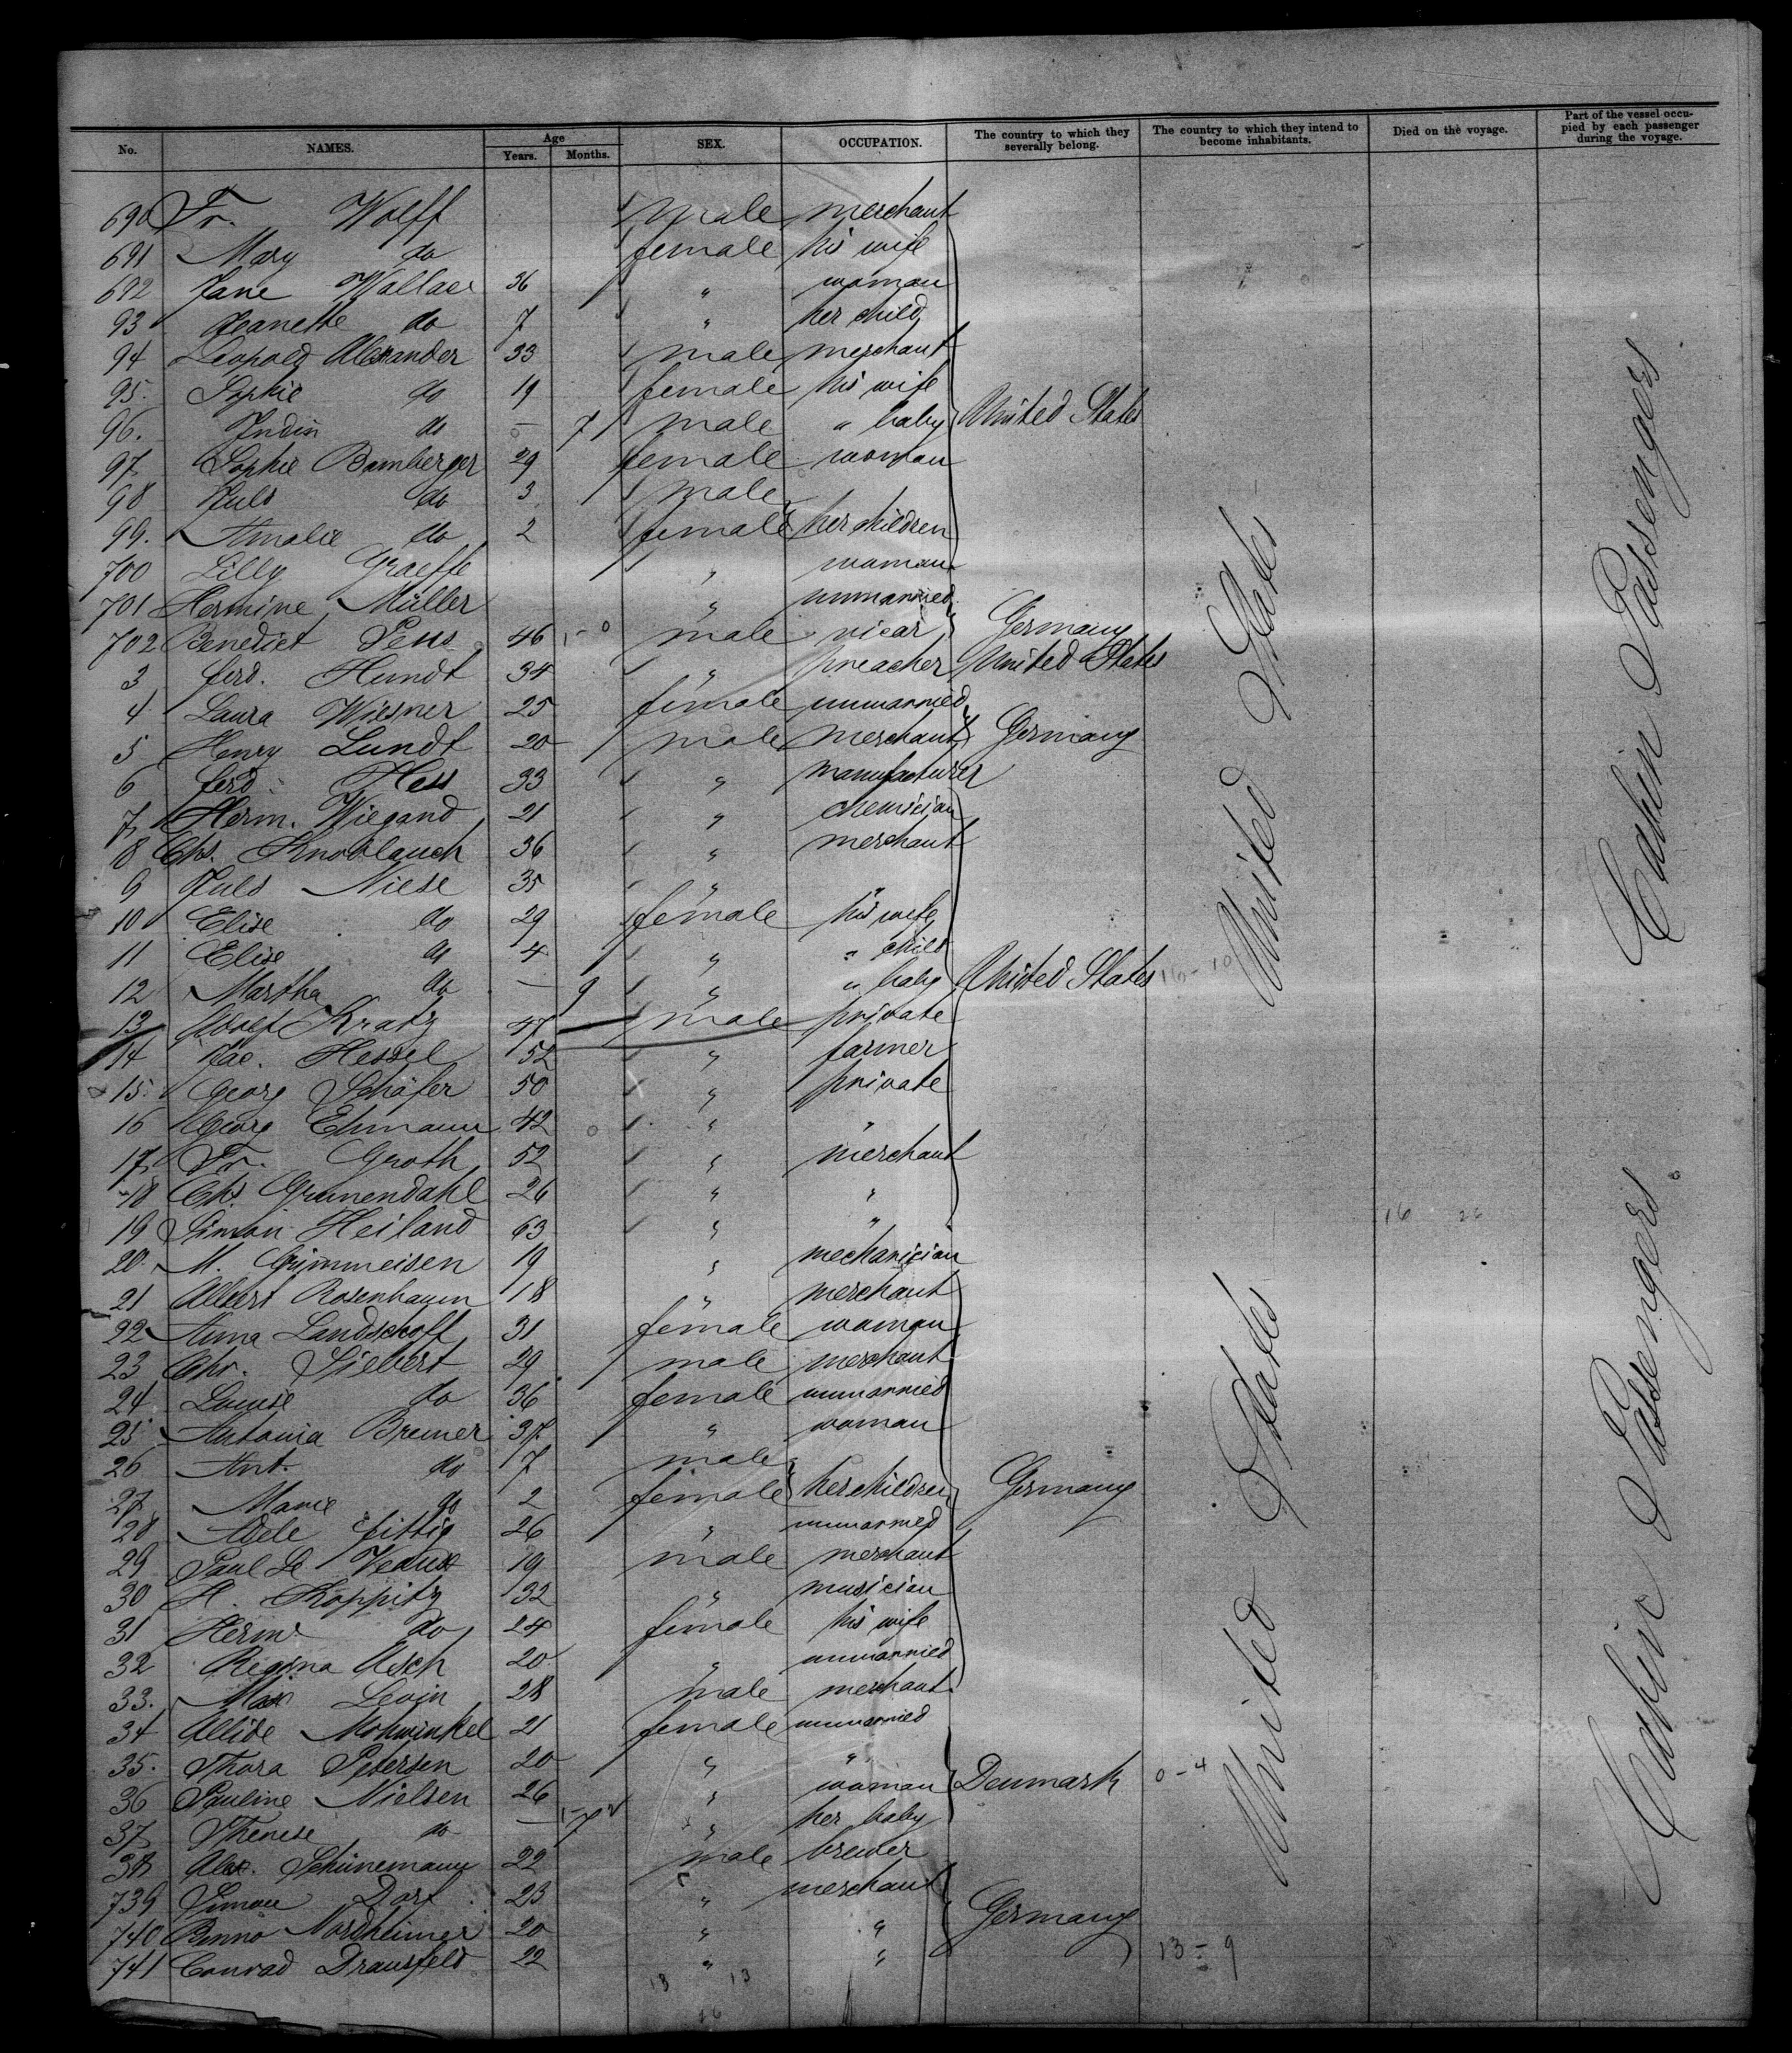 No. NAMES. Age Years. Months. SEX. OCCUPATION. The country to which they severally belong. The country to which they intend to become inhabitants. Died on the voyage. Part of the vessel occupied by each passenger during the voyage.
690 Fr. Wolff male merchant
691 Mary do female his wife
692 Jane Wallace 36 " woman
93 Jeanette do 7 " her child
94 Leopold Alexander 33 male merchant
95. Sophie do 19 female his wife
96. do — 7 male " baby United States
97 Sophie Bamberger 29 female woman
98 Juls do 3 male
99. Amalie do 2 female her children
700 Lilly Graeffe " woman
701 Hermine Müller " unmarried
702 Benedict 46 male vicar Germany
3 ferd. Hundt 34 " preacher United States
4 Laura Wiesner 25 female unmarried
5 Henry Lundt 20 male merchant Germany
6 ferd. Hess 33 " manufacturer
7 Herm. Wiegand 21 " chemician
8 Chs. Knoblauch 36 " merchant
9 Juls Niese 35 " "
10 Elise do 29 female his wife
11 Elise do 4 " " child
12 Martha do — 9 " " baby United States 16-10
13 Adolf Kratz 47 male private
14 Jac. Hessel 52 " farmer
15. Georg Schäfer 50 " private
16 Georg Ehmann 42 " "
17 Fr. Groth 52 " merchant
18 Chs. Grunendahl 26 " "
19 Simon Heiland 63 " "
20. M. Gimmeisen 19 " mechanician
21 Albert Rosenhaum 18 " merchant
22 Anna Landschoff 31 female woman
23 Chr. Siebert 29 male merchant
24 Louise do 36 female unmarried
25 Antonia Bremer 37 " woman
26 Ant. do 7 male
27 Marie do 2 female her children Germany
28 Adele fittig 26 " unmarried
29 Paul Le Veaux 19 male merchant
30 H. Koppitz 32 " musician
31 Herm. do 24 female his wife
32 Regina Asch 20 " unmarried
33. Max Levin 28 male merchant
34 Allide Mohwinkel 21 female unmarried
35. Thora Petersen 20 " "
36 Pauline Nielsen 26 " woman Denmark 0-4
37 Therese do — 7 " her baby
38 Alex. Schünemann 22 male brewer
739 Simon Dorf 23 " merchant
740 Benno Nordheimer 20 " " Germany
741 Conrad Drausfeld 22 " " 13-9
United States
United States
Cabin Passengers
Cabin Passengers